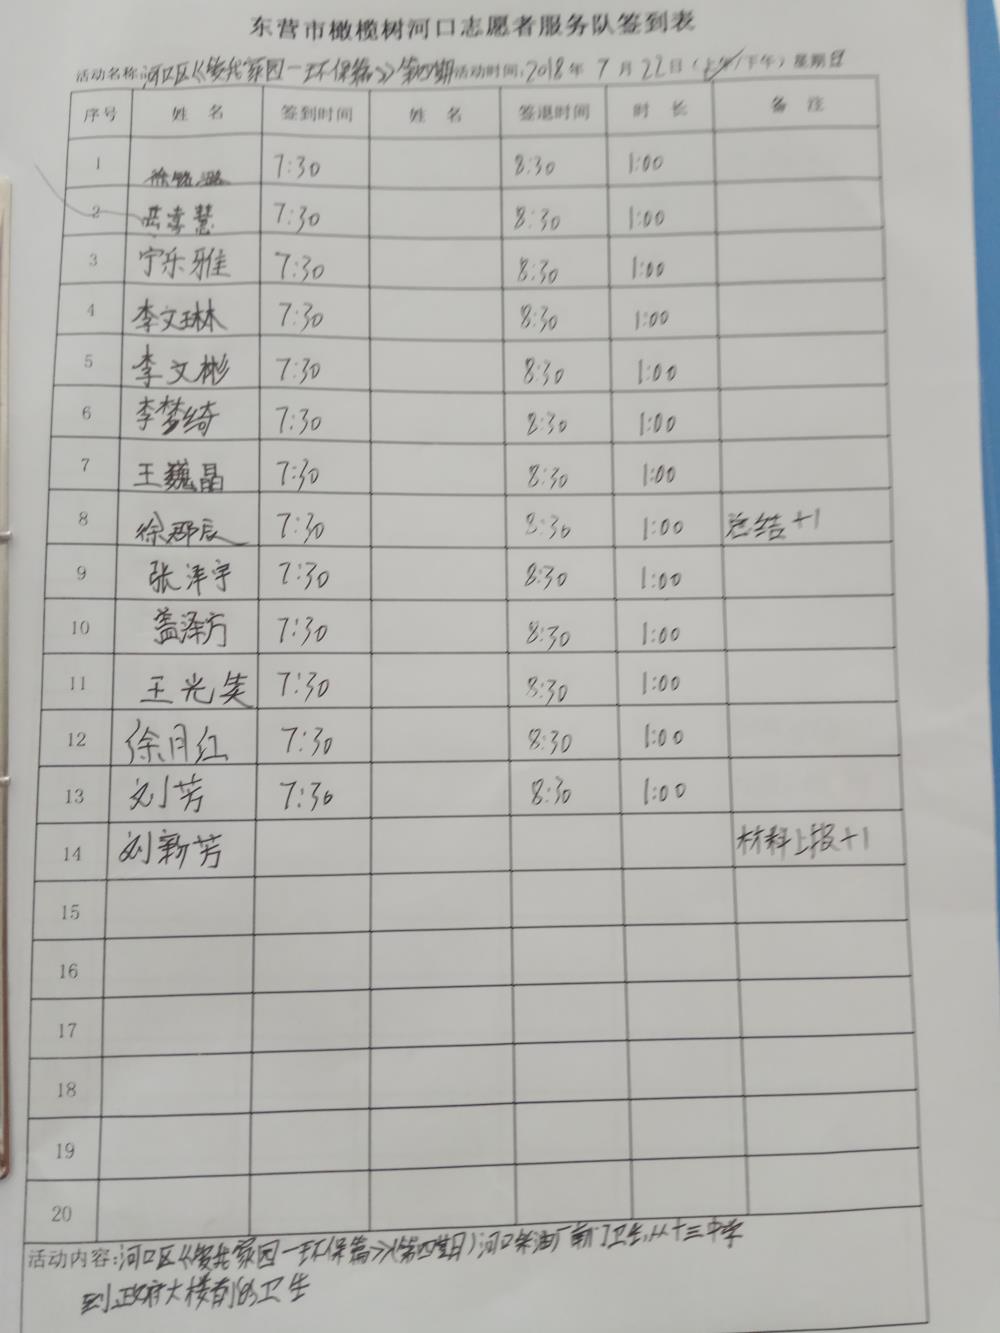 东营市橄榄树河口志愿者服务队签到表
活动名称:河口区《爱我家园一环保篇》第四期 活动时间:2018年7月22日(上午/下午)星期日
序号 姓 名 签到时间 姓 名 签退时间 时 长 备 注
1 7:30 8:30 1:00
2 7:30 8:30 1:00
3 宁乐雅 7:30 8:30 1:00
4 李文琳 7:30 8:30 1:00
5 李文彬 7:30 8:30 1:00
6 李梦绮 7:30 8:30 1:00
7 王巍晶 7:30 8:30 1:00
8 7:30 8:30 1:00 总结+1
9 张泽宇 7:30 8:30 1:00
10 盖泽方 7:30 8:30 1:00
11 王光美 7:30 8:30 1:00
12 徐月红 7:30 8:30 1:00
13 刘芳 7:30 8:30 1:00
14 刘新芳 材料上报+1
15
16
17
18
19
20
活动内容:河口区《爱我家园一环保篇》(第四期)河口采油厂前门卫生,从十三中学
到政府大楼前的卫生